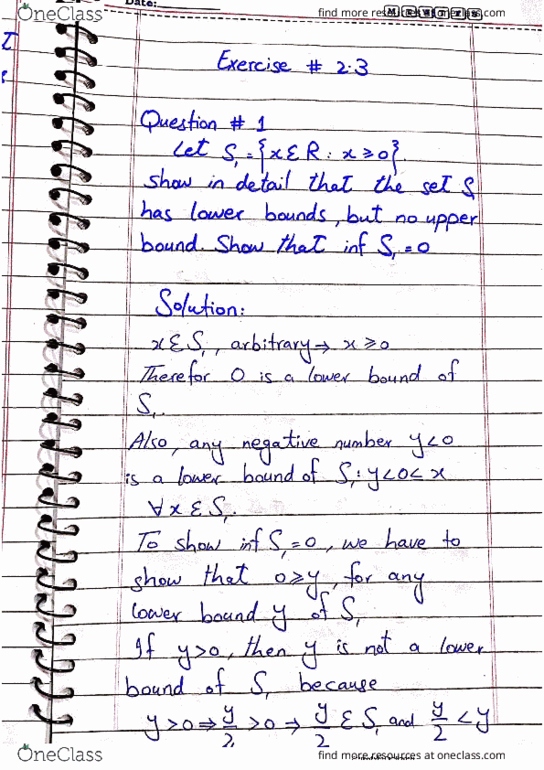 OneClass
Date:
find more resources at oneclass.com
Exercise # 2.3
Question # 1
Let S₁ = {x ε R : x ≥ 0}.
Show in detail that the set S₁
has lower bounds, but no upper
bound. Show that inf S₁ = 0
Solution:
x ε S₁, arbitrary → x ≥ 0
Therefor 0 is a lower bound of
S₁.
Also, any negative number y<0
is a lower bound of S₁: y<0≤x
∀ x ε S₁.
To show inf S₁=0, we have to
show that 0≥y, for any
lower bound y of S₁
If y>0, then y is not a lower
bound of S₁ because
y>0 ⇒ y/2 >0 → y/2 ε S₁ and y/2 < y
OneClass
find more resources at oneclass.com